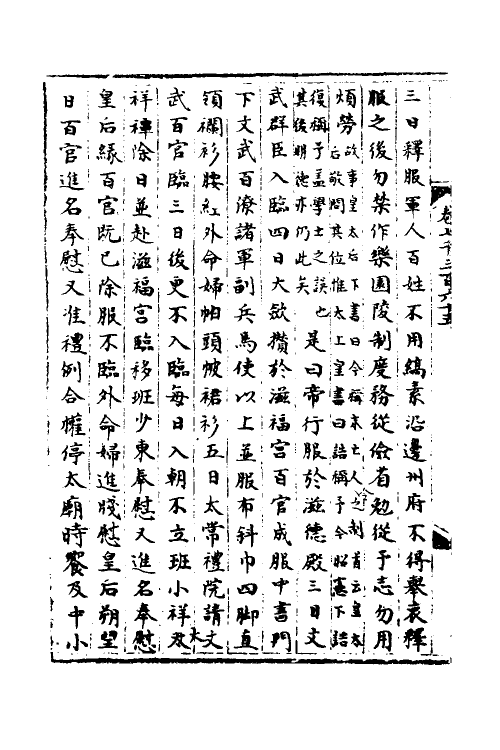 三日釋服軍人百姓不用縞素沿邊州府不得舉哀釋
服之後勿禁作樂園陵制度務從儉省勉從予志勿用
煩勞故事皇太后下書曰令稱未亡人之制首云皇太
后敬問其位惟太上皇書曰誥稱予今昭憲下誥
復稱予蓋學士之誤也
其後明德亦仍此矣是日帝行服於滋德殿三日文
武群臣入臨四日大斂攢於滋福宮百官成服中書門
下文武百僚諸軍副兵馬使以上並服布斜巾四脚直
領襴衫腰絰外命婦帕頭帔裙衫五日太常禮院請文
武百官臨三日後更不入臨每日入朝不立班小祥及大
祥禫除日並赴滋福宮臨移班少東奉慰又進名奉慰
皇后緣百官既已除服不臨外命婦進牋慰皇后朔望
日百官進名奉慰又准禮例合權停太廟時饗及中小
卷七千三百六十五